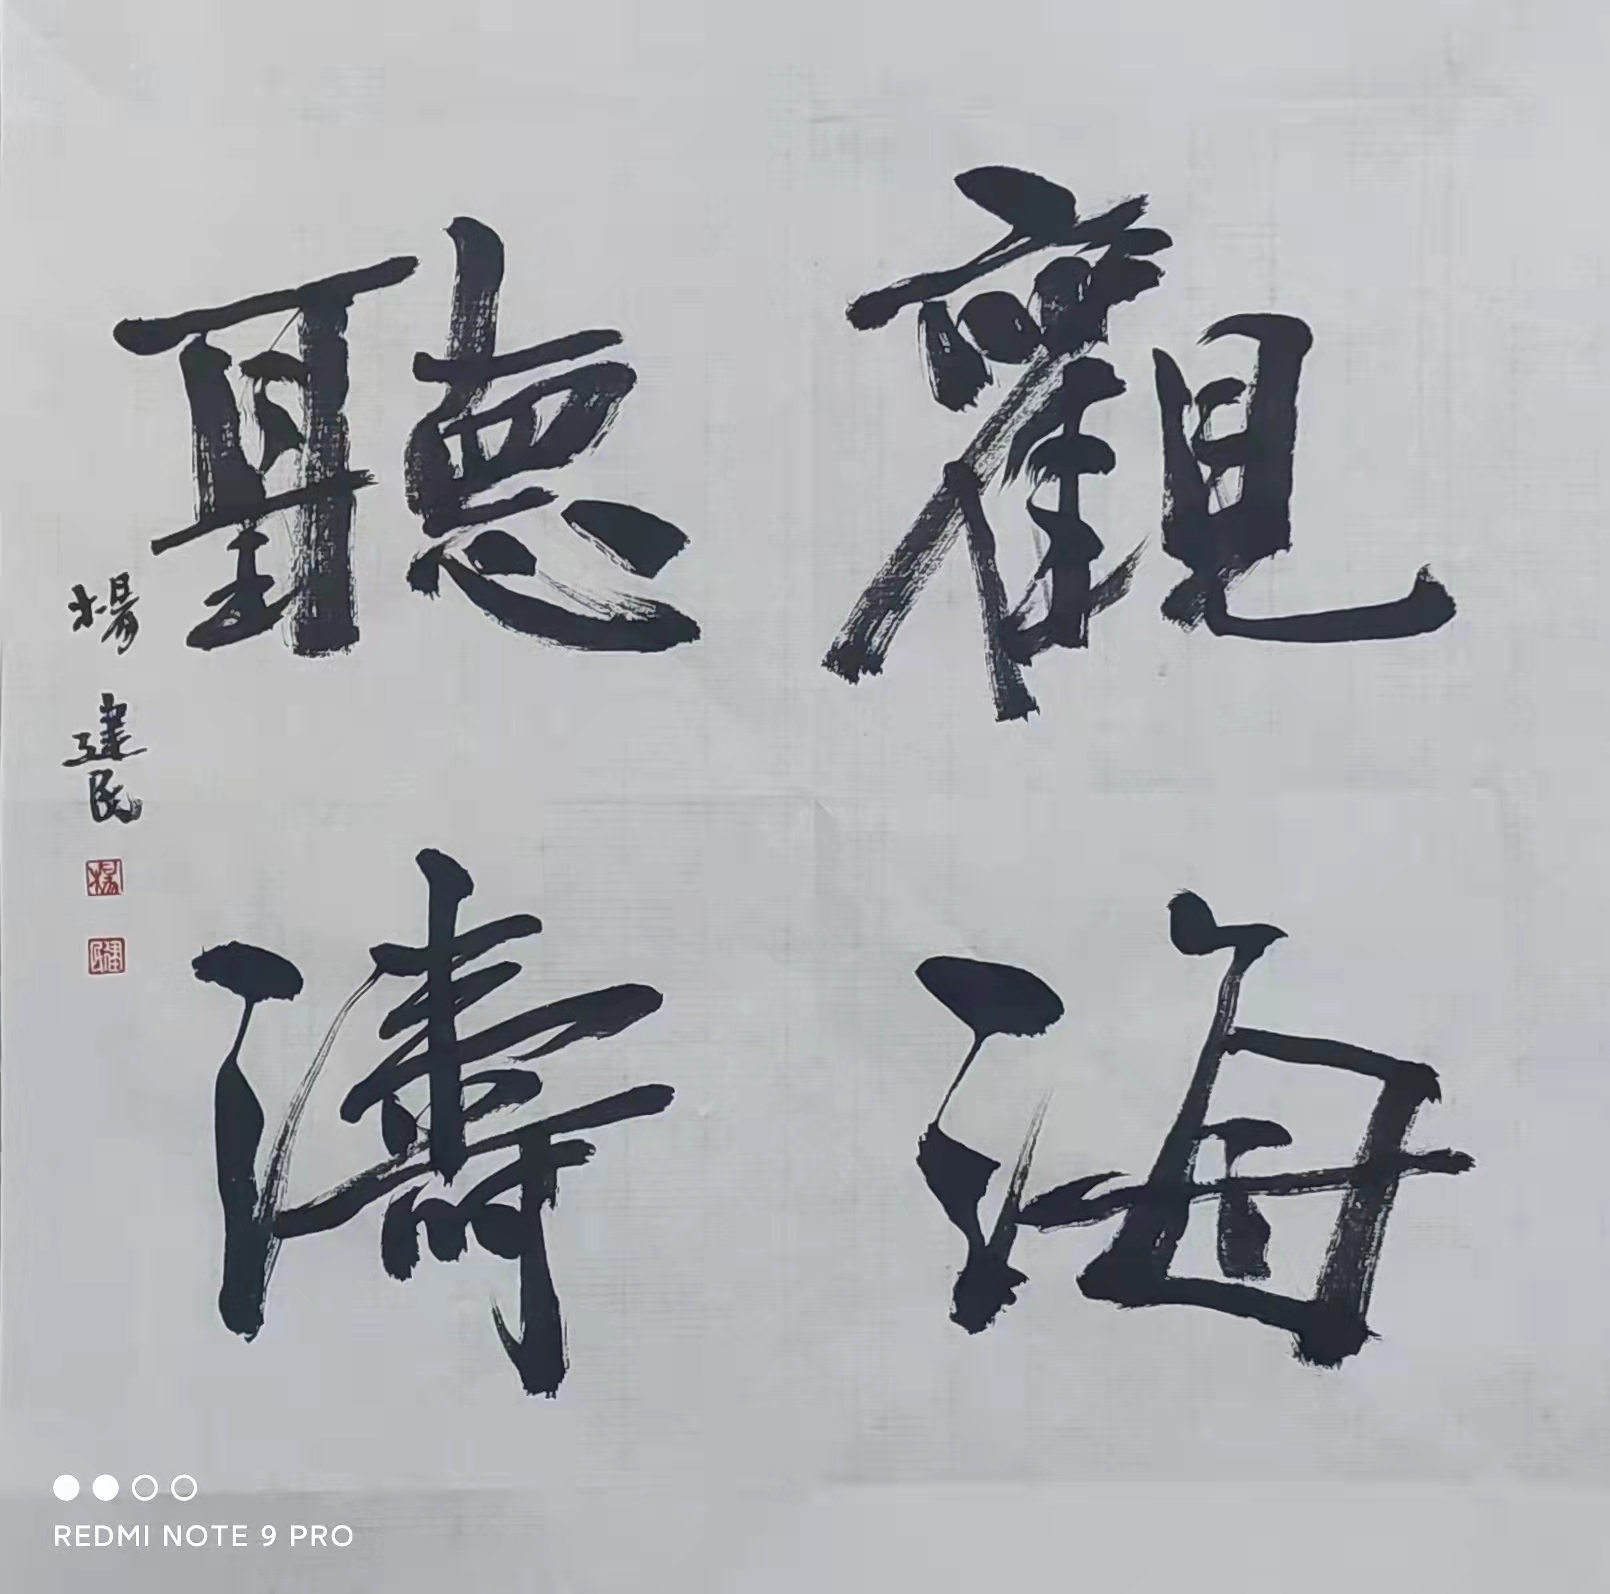 觀海
聽濤
楊建民
楊
建民
REDMI NOTE 9 PRO